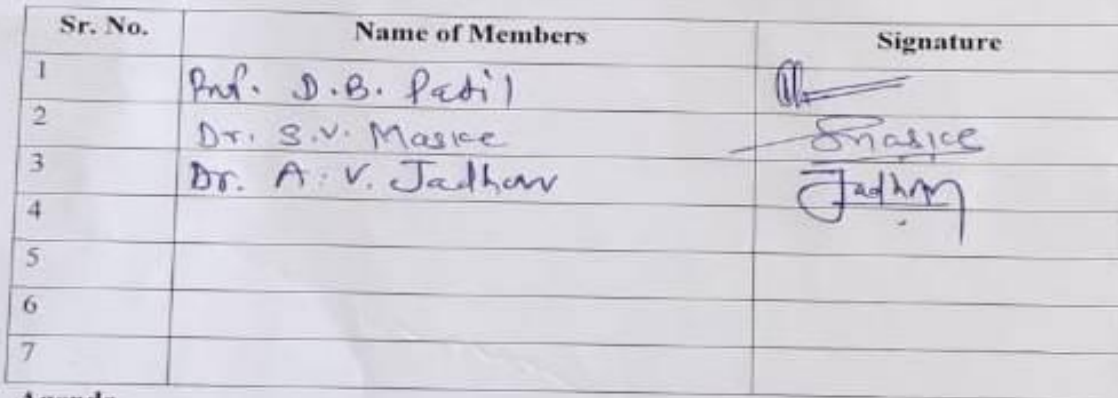 Sr. No. Name of Members Signature
1 Prof. D.B. Patil
2 Dr. S.V. Maske
3 Dr. A.V. Jadhav Jadhav
4
5
6
7
Agenda